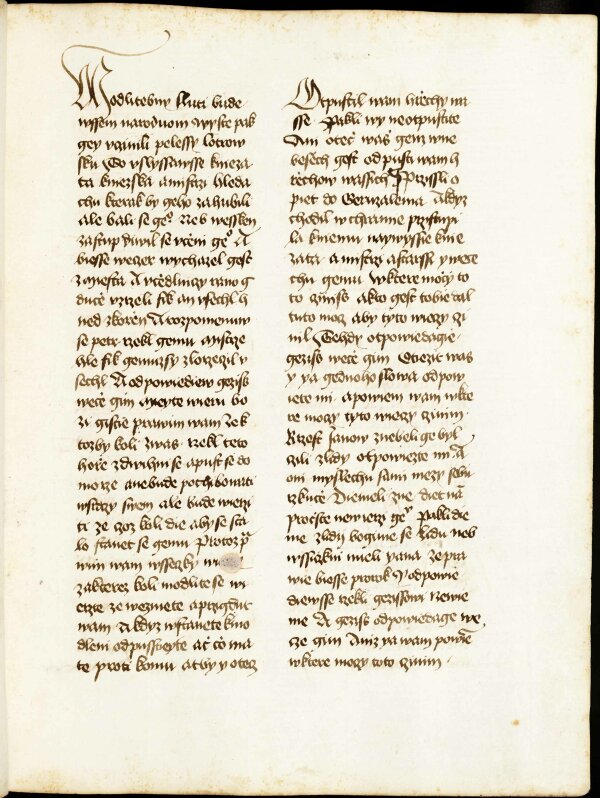 Modlitebny sluti bude
wssem naroduom wyste pak
gey vcinili pelessy lotrow
sku To vslyssawsse knieza
ta kniezska a mistrzi hleda
chu kterak by geho zahubili
ale bali se geo Neb wessken
zastup diwil se vceni geo A
biesse weczer wychazel gest
z miesta A wtedlniczy rano g
duce vzrzeli fik an vsechl h
ned z korzen A rozpomenuw
se petr rzekl gemu mistrze
hle fik gemuzsy zlorzeczil v
sechl A odpowiediew gezis
wece gim Mieyte wieru bo
zi gistie prawim wam ze k
tozby koli z was rzekl teto
horze zdwihni se a pust se do
morze a nebude pochibowati
w srdczy swem ale bude wierzi
ti ze czoz koli die aby se sta
lo stanet se gemu Protoz p
wim wam wsseczky
zakterez koli modlite se wi
erzte ze wezmete a przigduc
wam A kdyz wstanete k mo
dleni odpusstieyte ac co ma
te proti komu at by y otecz
Otpustil wam hrziechy wa
sse Pakli wy neotpustite
Ani otec was genz w ne
besech gest odpusti wam h
rziechow wassich Y przissli o
piet do Geruzalema A kdyz
chodil w chramie przistupi
la k niemu naywyssie knie
zata a mistrzi a starssi y wece
chu gemu W ktere moczy to
to czinis a kto gest tobie dal
tuto mocz aby tyto wieczy czi
nil Gehdy otpowiedagie
gezis wece gim Otiezit was
y ya gednoho slowa odpow
iete mi a powiem wam w kte
re moczy tyto wieczy czinim
Krzest Janow z nebeli ge byl
czili z lidy otpowiezte mi A
oni myslechu sami mezy sebu
rzkuce Diemeli z ne diet na
procste newierzi geo Pakli die
me z lidy bogime se lidu neb
wssiczkni mieli yana ze pra
wie biesse prorok Y odpowie
diewsse rzekli gezissowi newie
me A gezis odpowiedage we
cze gim Aniz ya wam powie
w ktere moczy toto czinim